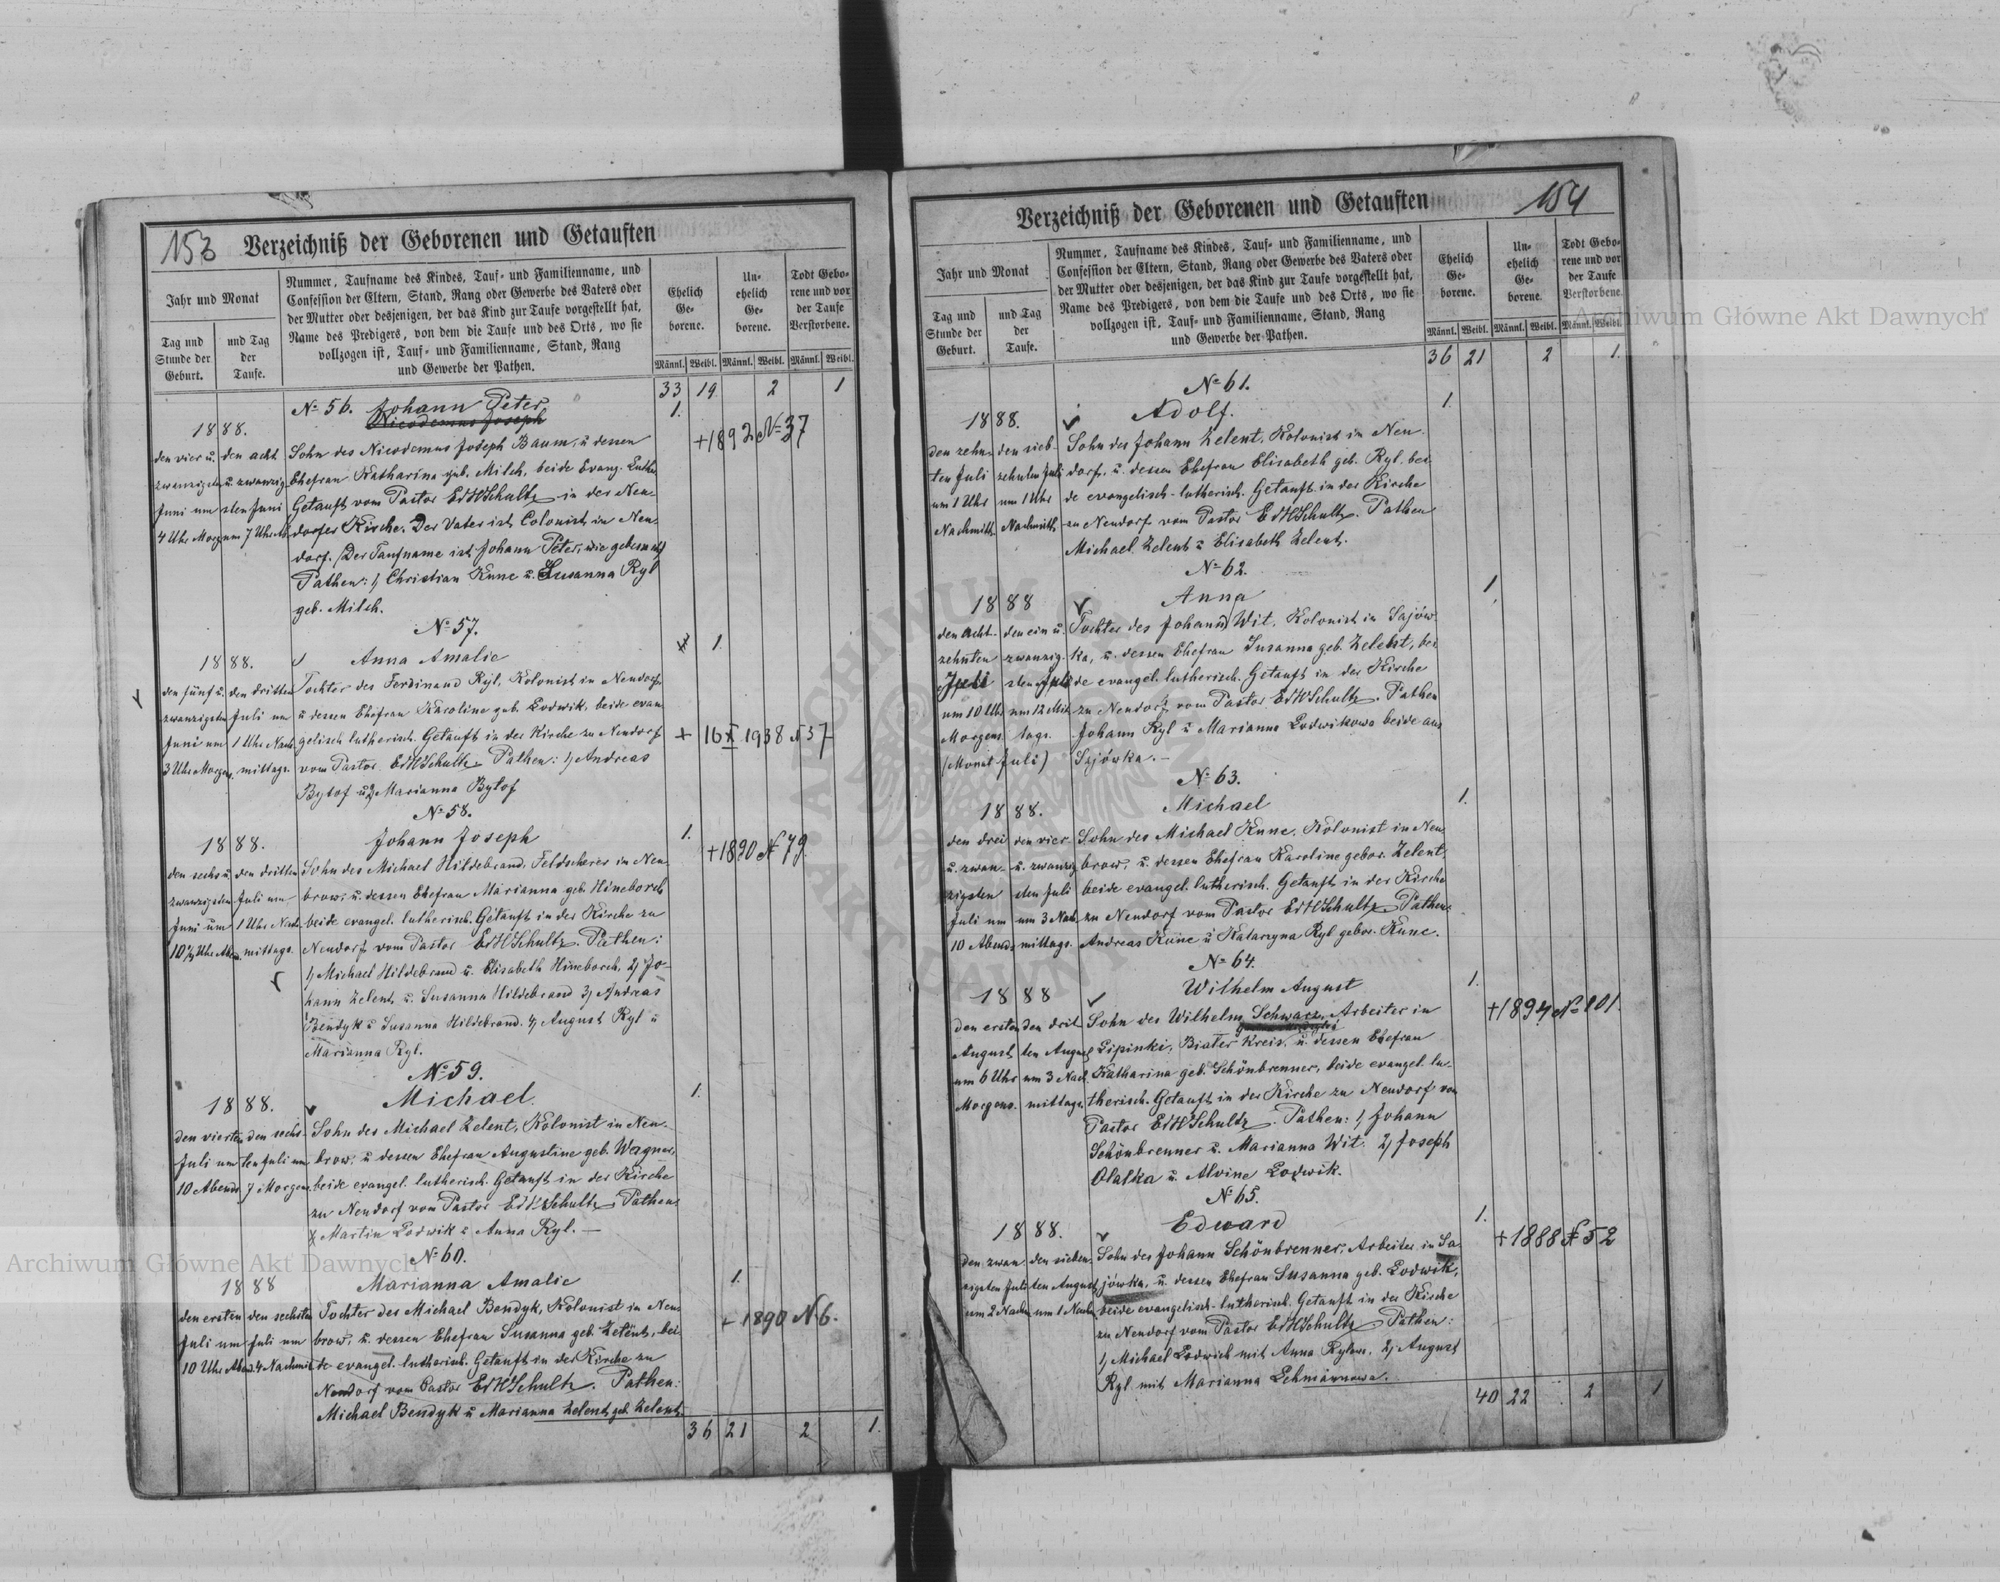 153 Verzeichniß der Geborenen und Getauften
Jahr und Monat
Tag und
Stunde der
Geburt.
und Tag
der
Taufe.
Nummer, Taufname des Kindes, Tauf- und Familienname, und
Confession der Eltern, Stand, Rang oder Gewerbe des Vaters oder
der Mutter oder desjenigen, der das Kind zur Taufe vorgestellt hat,
Name des Predigers, von dem die Taufe und des Orts, wo sie
vollzogen ist, Tauf- und Familienname, Stand, Rang
und Gewerbe der Pathen.
Ehelich
Ge-
borene.
Un-
ehelich
Ge-
borene.
Todt Gebo-
rene und vor
der Taufe
Verstorbene.
Männl. Weibl. Männl. Weibl. Männl. Weibl.
33 19 2 1
№ 56. Johann Peter 1.
Nicodemus Joseph
1888.
+1892 № 37
den vier u.
zwanzigsten
Juni um
4 Uhr Morg.
den acht
u zwanzig-
sten Juni
um 7 Uhr Ab.
Sohn des Nicodemus Joseph Baum, u dessen
Ehefrau Katharina geb. Milch, beide Evang. Luth.
Getauft vom Pastor EdHSchultz in der Neu-
dorfer Kirche. Der Vater ist Colonist in Neu-
dorf. (Der Taufname ist Johann Peter, wie
Pathen: 1, Christian Kunc u. Susanna Ryl
geb. Milch.
№ 57.
1888. Anna Amalie 1.
den fünf u.
zwanzigsten
Juni um
3 Uhr Morgen.
den dritten
Juli um
1 Uhr Nach-
mittags.
Tochter des Ferdinand Ryl, Kolonist in Neudorf
u dessen Ehefrau Karoline geb. Lodwik, beide evan
gelisch lutherisch. Getauft in der Kirche zu Neudorf
vom Pastor EdHSchultz. Pathen: 1, Andreas
Bytof u 2, Marianna Bytof
+ 16 X 1938 № 37
№ 58.
1888. Johann Joseph 1.
+1890 № 79.
den sechs u
zwanzigsten
Juni um
10 ½ Uhr Abd.
den dritten
Juli um
1 Uhr Nach-
mittags.
Sohn des Michael Hildebrand, Feldscherer in Neu-
brow, u. dessen Ehefrau Marianna geb. Hineborch
beide evangel. lutherisch. Getauft in der Kirche zu
Neudorf vom Pastor EdHSchultz. Pathen:
1, Michael Hildebrand u. Elisabeth Hineborch, 2, Jo-
hann Zelent u. Susanna Hildebrand 3, Andreas
Bendyk u Susanna Hildebrand. 4, August Ryl u
Marianna Ryl.
№ 59.
1888. Michael. 1.
den vierten
Juli um
10 Abends
den sechs-
ten Juli um
7 Morgens.
Sohn des Michael Zelent, Kolonist in Neu-
brow, u dessen Ehefrau Augustine geb. Wagner,
beide evangel. lutherisch. Getauft in der Kirche
zu Neudorf vom Pastor EdHSchultz. Pathen:
Martin Lodwik u Anna Ryl.
№ 60.
1888 Marianna Amalie 1.
den ersten
Juli um
10 Uhr Abd.
den sechsten
Juli um
4 Nachmit.
Tochter des Michael Bendyk, Kolonist in Neu
brow, u. dessen Ehefrau Susanna geb. Zelent, bei
de evangel. lutherisch. Getauft in der Kirche zu
Neudorf vom Pastor EdHSchultz. Pathen:
Michael Bendyk u Marianna Zelent geb. Zelent.
+ 1890 № 6.
36 21 2 1.
Verzeichniß der Geborenen und Getauften 154
Jahr und Monat
Tag und
Stunde der
Geburt.
und Tag
der
Taufe.
Nummer, Taufname des Kindes, Tauf- und Familienname, und
Confession der Eltern, Stand, Rang oder Gewerbe des Vaters oder
der Mutter oder desjenigen, der das Kind zur Taufe vorgestellt hat,
Name des Predigers, von dem die Taufe und des Orts, wo sie
vollzogen ist, Tauf- und Familienname, Stand, Rang
und Gewerbe der Pathen.
Ehelich
Ge-
borene.
Un-
ehelich
Ge-
borene.
Todt Gebo-
rene und vor
der Taufe
Verstorbene.
Männl. Weibl. Männl. Weibl. Männl. Weibl.
36 21 2 1.
№ 61.
1888. Adolf. 1.
den zehn-
ten Juli
um 1 Uhr
Nachmitt.
den sieb-
zehnten Juli
um 1 Uhr
Nachmitt.
Sohn des Johann Zelent, Kolonist in Neu
dorf, u. dessen Ehefrau Elisabeth geb. Ryl. bei
de evangelisch-lutherisch. Getauft in der Kirche
zu Neudorf vom Pastor EdHSchultz. Pathen
Michael Zelent u Elisabeth Zelent.
№ 62.
1888 Anna 1.
den acht-
zehnten
Juli
um 10 Uhr
Morgens
(Monat
den ein u.
zwanzig-
sten Juli
um 12 Mit-
tags.
Juli)
Tochter des Johann Wit, Kolonist in Sajów
ka, u. dessen Ehefrau Susanna geb. Zelent, bei
de evangel. lutherisch. Getauft in der Kirche
zu Neudorf vom Pastor EdHSchultz. Pathen
Johann Ryl u Marianna Lodwikowa beide aus
Sajówka.
№ 63.
1888. Michael 1.
den drei
u. zwan-
zigsten
Juli um
10 Abends
den vier
u. zwanzig
sten Juli
um 3 Nach-
mittags.
Sohn des Michael Kunc, Kolonist in Neu
brow, u. dessen Ehefrau Karoline gebor. Zelent,
beide evangel. lutherisch. Getauft in der Kirche
zu Neudorf vom Pastor EdHSchultz. Pathen:
Andreas Kunc u Katarzyna Ryl gebor. Kunc.
№ 64.
1888 Wilhelm August 1.
+1894 № 101.
den ersten
August
um 6 Uhr
Morgens.
den drit-
ten August
um 3 Nach
mittags.
Sohn des Wilhelm Schwarz, Arbeiter in
Lipinki, Bialer Kreis, u. dessen Ehefrau
Katharina geb. Schönbrenner, beide evangel. lu-
therisch. Getauft in der Kirche zu Neudorf von
Pastor EdHSchultz. Pathen: 1, Johann
Schönbrenner u. Marianna Wit. 2, Joseph
Olatka u. Alvine Lodwik.
№ 65.
1888. Edward 1.
+1888 № 52
den zwan
zigsten Juli
um 2 Nachm
den sieben
ten August
um 1 Nachm
Sohn des Johann Schönbrenner, Arbeiter in Sa
jówka, u. dessen Ehefrau Susanna geb. Lodwik,
beide evangelisch-lutherisch. Getauft in der Kirche
zu Neudorf vom Pastor EdHSchultz. Pathen:
1, Michael Lodwich mit Anna Rylowa. 2, August
Ryl mit Marianna Lehmannowa.
40 22 2 1
Archiwum Główne Akt Dawnych
Archiwum Główne Akt Dawnych